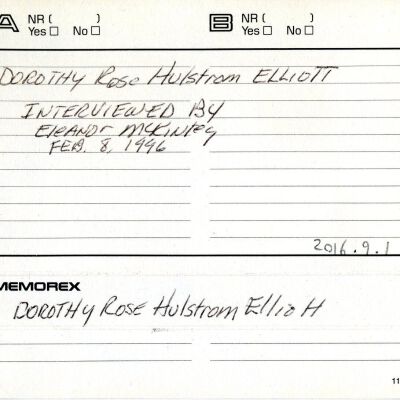 A NR ( ) Yes □ No □ B NR ( ) Yes □ No □
DOROTHY Rose Hulstrom ELLIOTT
INTERVIEWED BY
Eleanor McKinley
FEB. 8, 1996
2016.9.1
MEMOREX
DOROTHY ROSE Hulstrom Elliott
11